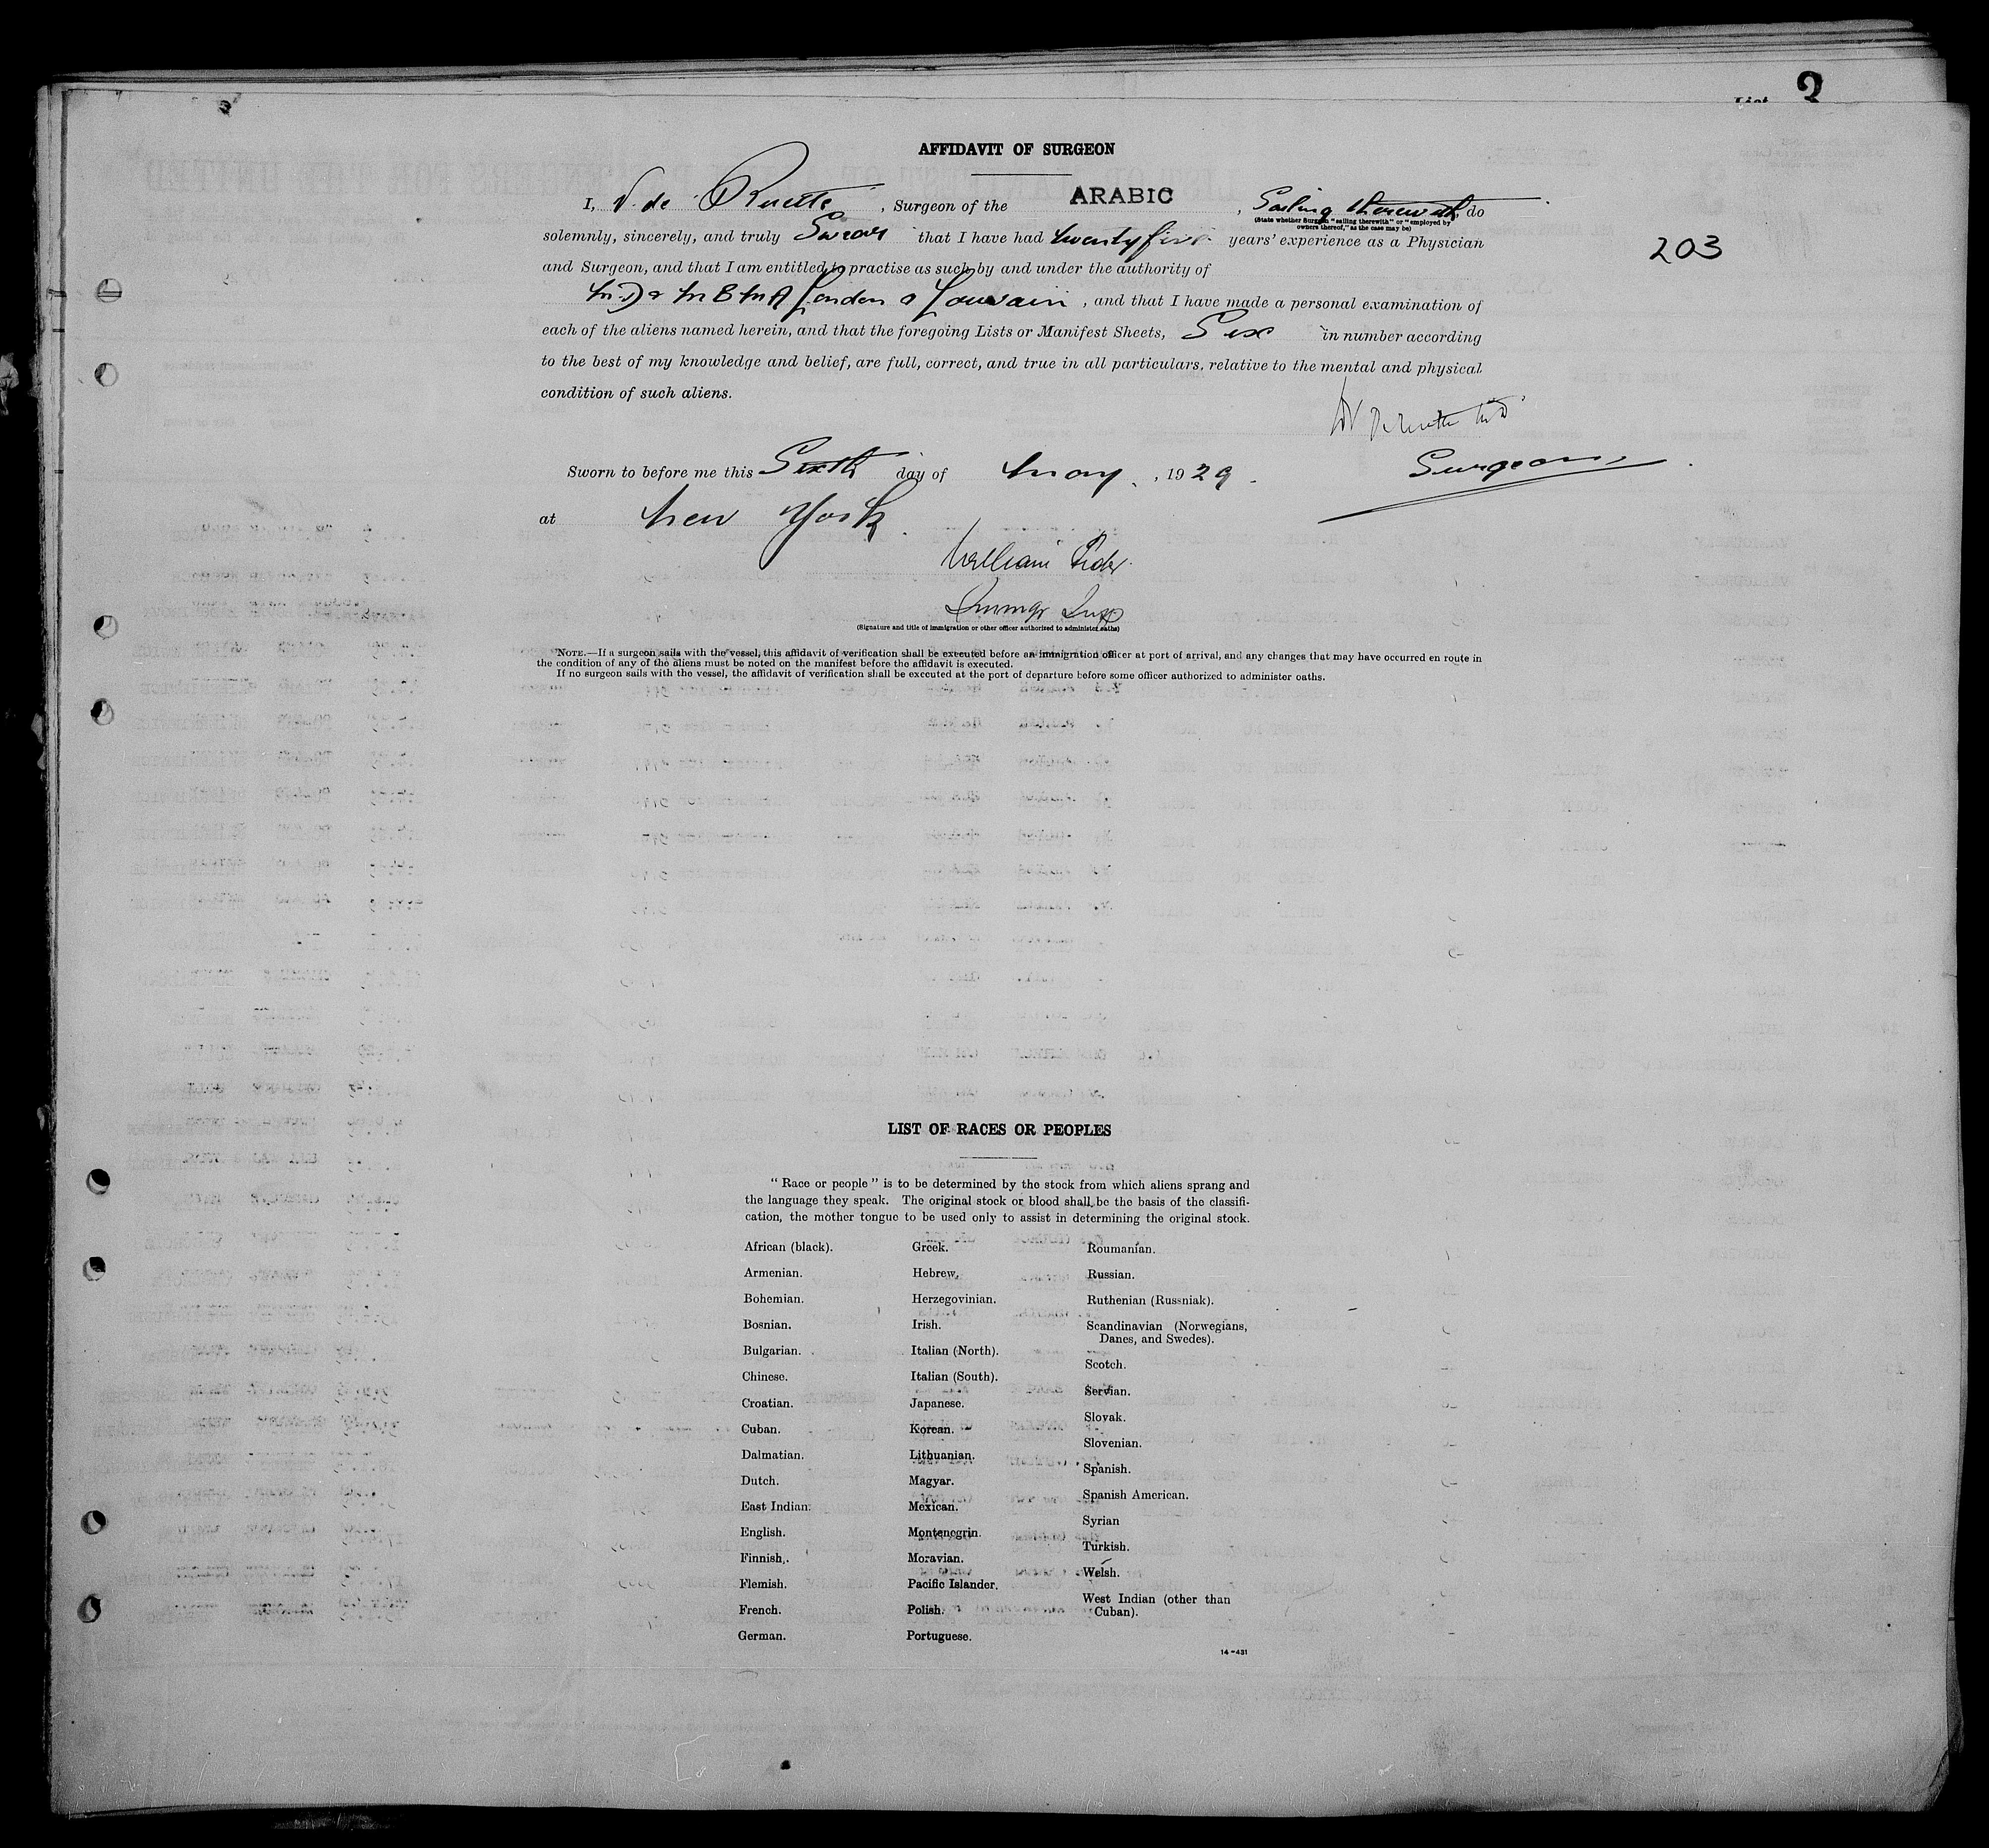 List 3
AFFIDAVIT OF SURGEON
I, V. de Ruette, Surgeon of the ARABIC, Sailing therewith, do
(State whether Surgeon "sailing therewith" or "employed by
owners thereof," as the case may be)
solemnly, sincerely, and truly Swear that I have had twenty five years' experience as a Physician
203
and Surgeon, and that I am entitled to practise as such by and under the authority of
London & Louvain, and that I have made a personal examination of
each of the aliens named herein, and that the foregoing Lists or Manifest Sheets, Six in number according
to the best of my knowledge and belief, are full, correct, and true in all particulars, relative to the mental and physical
condition of such aliens.
Surgeon.
Sworn to before me this Sixth day of May, 1929.
at New York.
William
Immgr Insp
(Signature and title of immigration or other officer authorized to administer oaths)
NOTE.—If a surgeon sails with the vessel, this affidavit of verification shall be executed before an immigration officer at port of arrival, and any changes that may have occurred en route in
the condition of any of the aliens must be noted on the manifest before the affidavit is executed.
If no surgeon sails with the vessel, the affidavit of verification shall be executed at the port of departure before some officer authorized to administer oaths.
LIST OF RACES OR PEOPLES
"Race or people" is to be determined by the stock from which aliens sprang and
the language they speak. The original stock or blood shall be the basis of the classifi-
cation, the mother tongue to be used only to assist in determining the original stock.
African (black).
Armenian.
Bohemian.
Bosnian.
Bulgarian.
Chinese.
Croatian.
Cuban.
Dalmatian.
Dutch.
East Indian.
English.
Finnish.
Flemish.
French.
German.
Greek.
Hebrew.
Herzegovinian.
Irish.
Italian (North).
Italian (South).
Japanese.
Korean.
Lithuanian.
Magyar.
Mexican.
Montenegrin.
Moravian.
Pacific Islander.
Polish.
Portuguese.
Roumanian.
Russian.
Ruthenian (Russniak).
Scandinavian (Norwegians,
Danes, and Swedes).
Scotch.
Servian.
Slovak.
Slovenian.
Spanish.
Spanish American.
Syrian
Turkish.
Welsh.
West Indian (other than
Cuban).
14—431